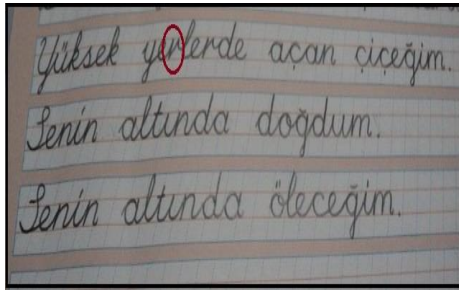 Yüksek yerlerde açan çiçeğim.
Senin altında doğdum.
Senin altında öleceğim.